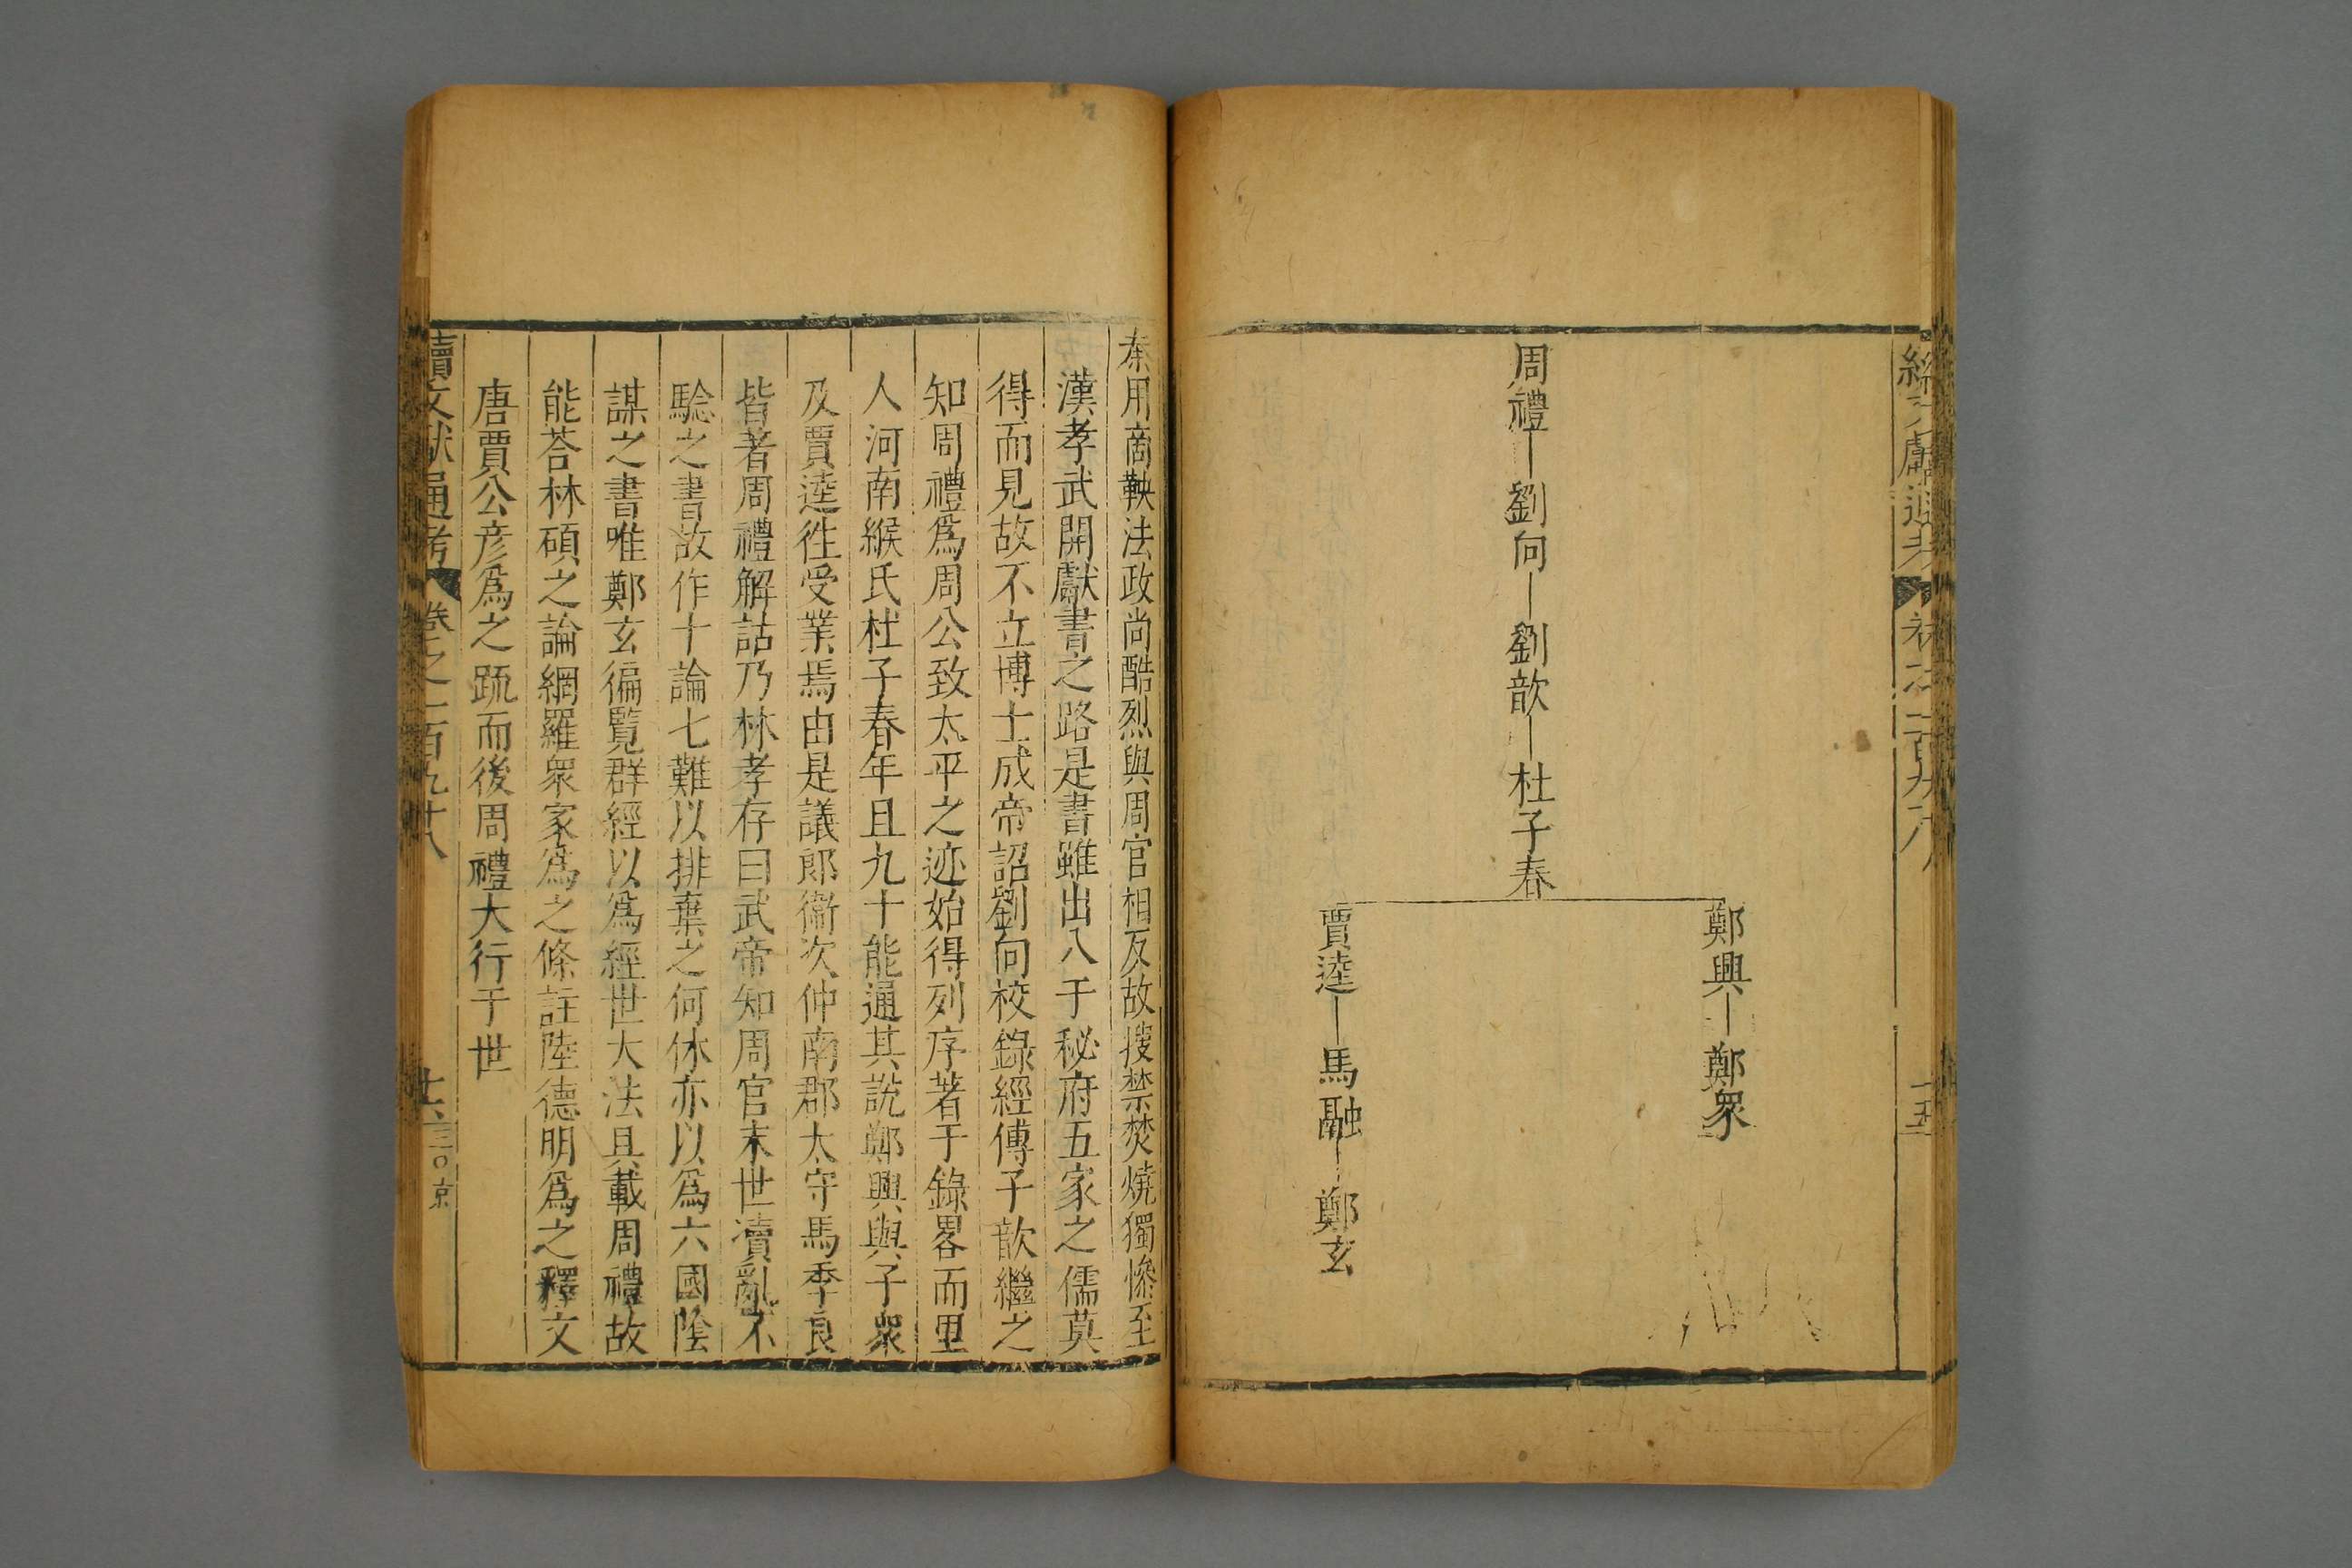 周禮
劉向
劉歆
杜子春
鄭興
鄭衆
賈逵
馬融
鄭玄
十五
秦用商鞅法政尚酷烈與周官相反故搜禁焚燒獨慘至
漢孝武開獻書之路是書雖出入于秘府五家之儒莫
得而見故不立博士成帝詔劉向校錄經傳子歆繼之
知周禮爲周公致太平之迹始得列序著于錄畧而里
人河南緱氏杜子春年且九十能通其說鄭興與子衆
及賈逵徃受業焉由是議郎衞次仲南郡太守馬季良
皆著周禮解詁乃林孝存曰武帝知周官末世瀆亂不
驗之書故作十論七難以排棄之何休亦以爲六國隂
謀之書唯鄭玄徧覽群經以爲經世大法具載周禮故
能荅林碩之論網羅衆家爲之條註陸德明爲之釋文
唐賈公彦爲之䟽而後周禮大行于世
續文獻通考 卷之一百九十八